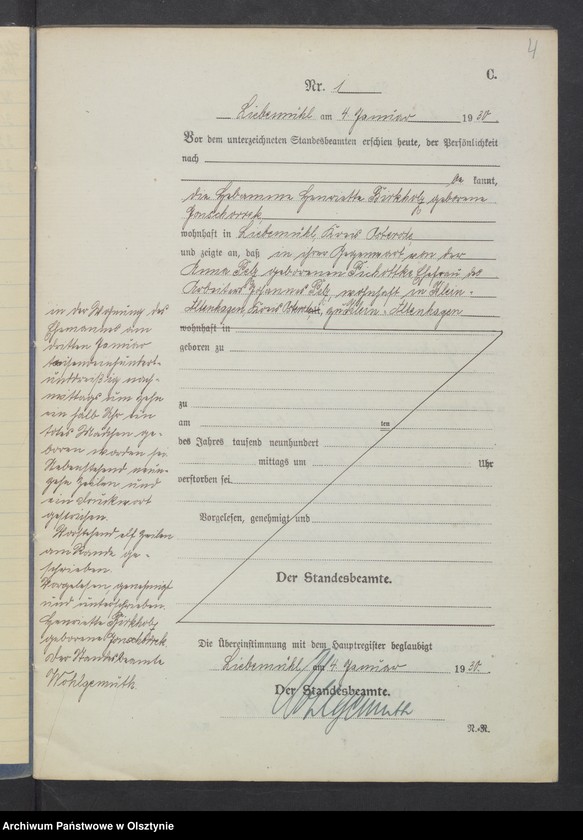 4
C.
Nr. 1
Liebemühl am 4. Januar 1930.
Vor dem unterzeichneten Standesbeamten erschien heute, der Persönlichkeit
nach
be kannt,
die Hebamme Henriette Birkholz geborene
wohnhaft in Liebemühl, Kreis Osterode
und zeigte an, daß in ihrer Gegenwart von der
Anna Pelz geborenen Ehefrau des
Arbeiters Johannes Pelz, wohnhaft in Klein-
Altenhagen, Kreis Osterode, zu Klein-Altenhagen
wohnhaft in
geboren zu
zu
am ten
des Jahres tausend neunhundert
mittags um Uhr
verstorben sei.
Vorgelesen, genehmigt und
Der Standesbeamte.
in der Wohnung des
Ehemannes am
dritten Januar
tausendneunhundert-
unddreißig nach-
mittags um zehn
ein halb Uhr ein
totes Mädchen ge-
boren worden sei.
Nebenstehend neun-
zehn Zeilen und
ein Druckwort
gestrichen.
Vorstehend elf Zeilen
am Rande ge-
schrieben.
Vorgelesen, genehmigt
und unterschrieben.
Henriette Birkholz
geborene
Der Standesbeamte
Wohlgemuth
Die Übereinstimmung mit dem Hauptregister beglaubigt
Liebemühl, am 4. Januar 1930.
Der Standesbeamte.
Wohlgemuth
R.-R.
Archiwum Państwowe w Olsztynie